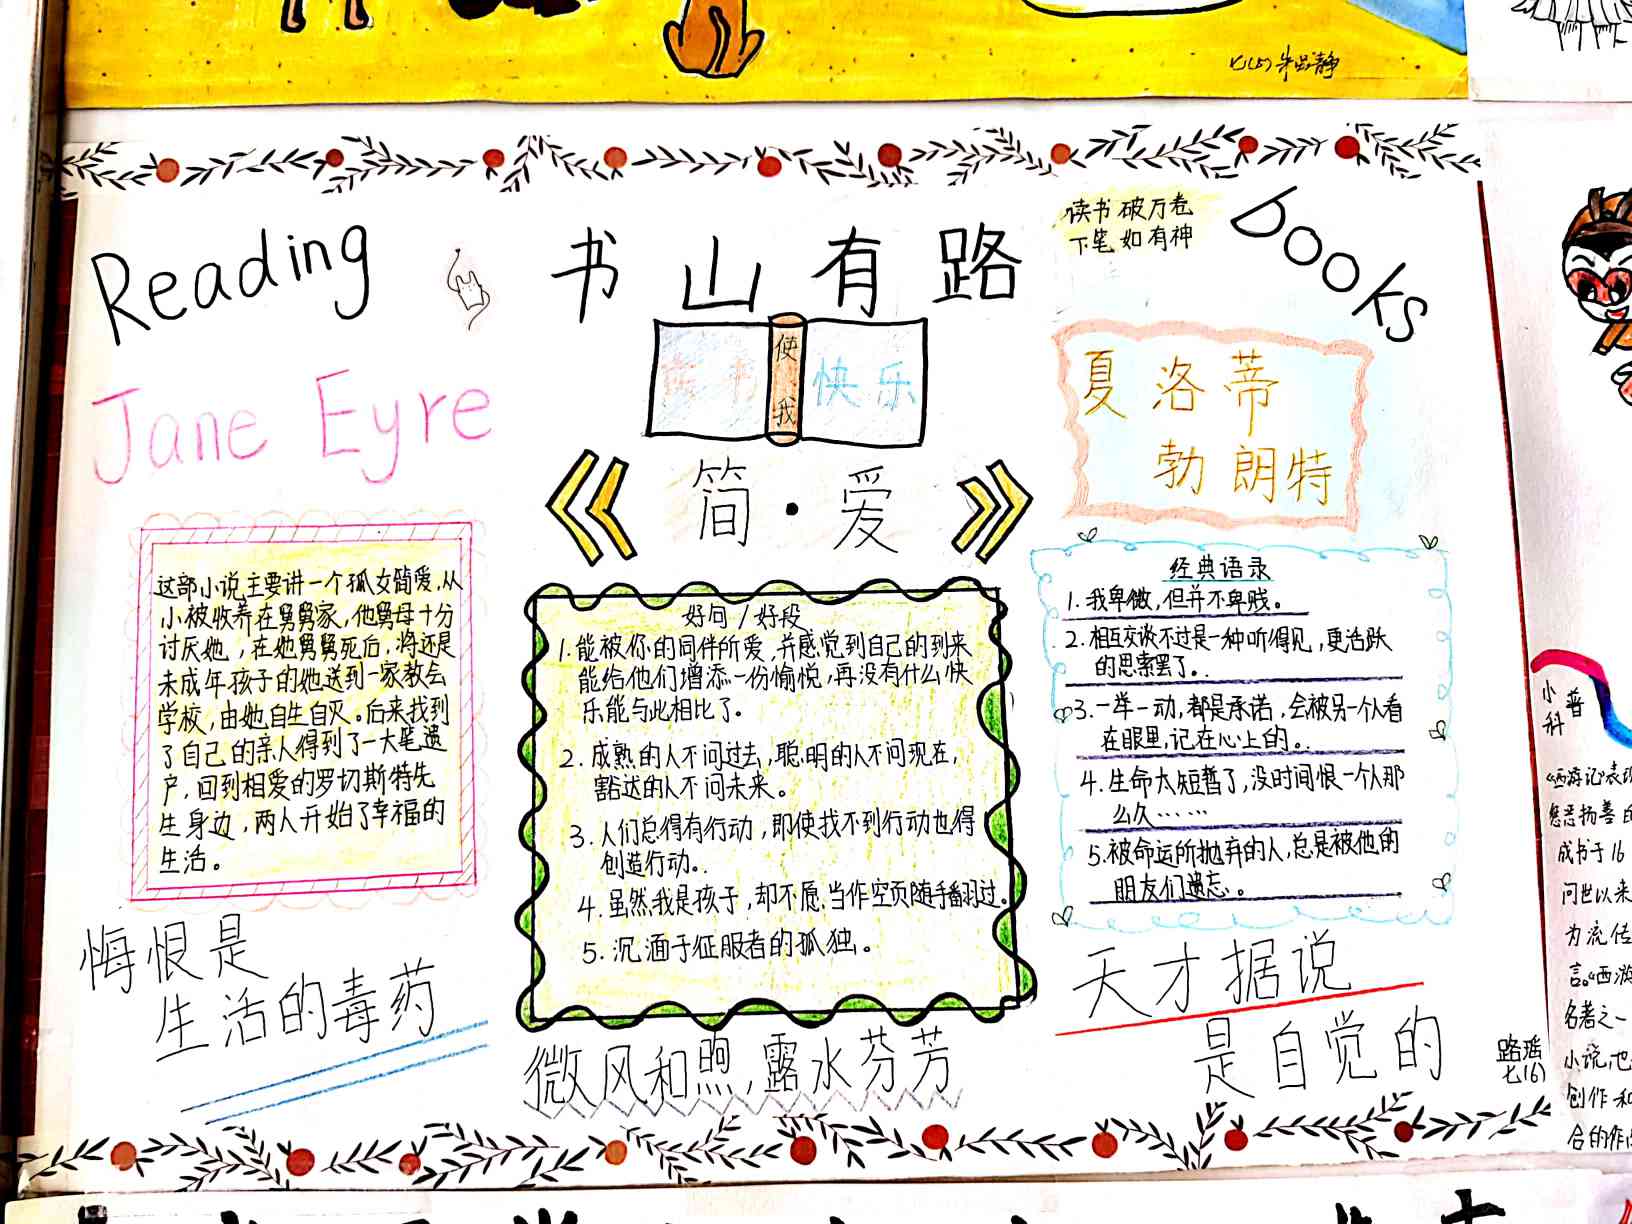 七(5)
Reading
书山有路
读书破万卷
下笔如有神
books
读书使我快乐
Jane Eyre
《简·爱》
夏洛蒂
勃朗特
这部小说主要讲一个孤女简爱,从
小被收养在舅舅家,他舅母十分
讨厌她,在她舅舅死后,将还是
未成年孩子的她送到一家教会
学校,由她自生自灭。后来找到
了自己的亲人得到了一大笔遗
产,回到相爱的罗切斯特先
生身边,两人开始了幸福的
生活。
好句/好段
1.能被你的同伴所爱,并感觉到自己的到来
能给他们增添一份愉悦,再没有什么快
乐能与此相比了。
2.成熟的人不问过去,聪明的人不问现在,
豁达的人不问未来。
3.人们总得有行动,即使找不到行动也得
创造行动。
4.虽然我是孩子,却不愿当作空页随手翻过。
5.沉湎于征服者的孤独。
经典语录
1.我卑微,但并不卑贱。
2.相互交谈不过是一种听得见,更活跃
的思索罢了。
3.一举一动,都是承诺,会被另一个人看
在眼里,记在心上的。
4.生命太短暂了,没时间恨一个人那
么久……
5.被命运所抛弃的人,总是被他的
朋友们遗忘。
悔恨是
生活的毒药
微风和煦,露水芬芳
天才据说
是自觉的
路瑶
七(6)
小普
科
《西游记》表现
惩恶扬善的
成书于16
问世以来
为流传
言。《西游
名著之一
小说,也
创作和
合的作